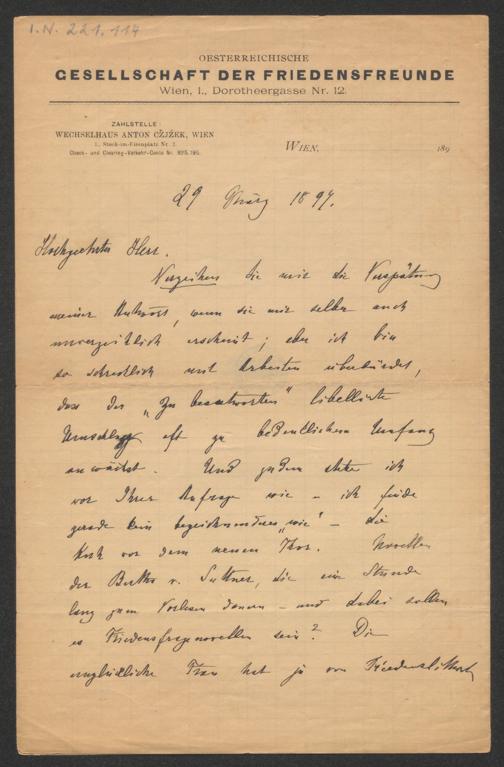 I.N. 221.114
OESTERREICHISCHE
GESELLSCHAFT DER FRIEDENSFREUNDE
Wien, I., Dorotheergasse Nr. 12.
ZAHLSTELLE:
WECHSELHAUS ANTON CŽJŽEK, WIEN
I., Stock-im-Eisenplatz Nr. 2.
Check- und Clearing-Verkehr-Conto Nr.
WIEN, 189
29 März 1897.
Hochgeehrter Herr.
Verzeihen Sie mir die Verspätung
meiner Antwort, wenn sie mir selber auch
unverzeihlich erscheint; aber ich bin
so schrecklich mit Arbeiten überbürdet,
dass der „Zu beantworten" libellirte
Umschlag oft zu bedenklichem Umfang
anwächst. Und zudem stehe ich
vor Ihrer Anfrage wie – ich finde
gerade kein bezeichnenderes „wie" – die
Kuh vor dem neuen Thor. Novellen
der Bertha v. Suttner, die eine Stunde
lang zum Vorlesen dauern – und dabei sollen
es Friedensfragenovellen sein? Die
unglückliche Frau hat ja von